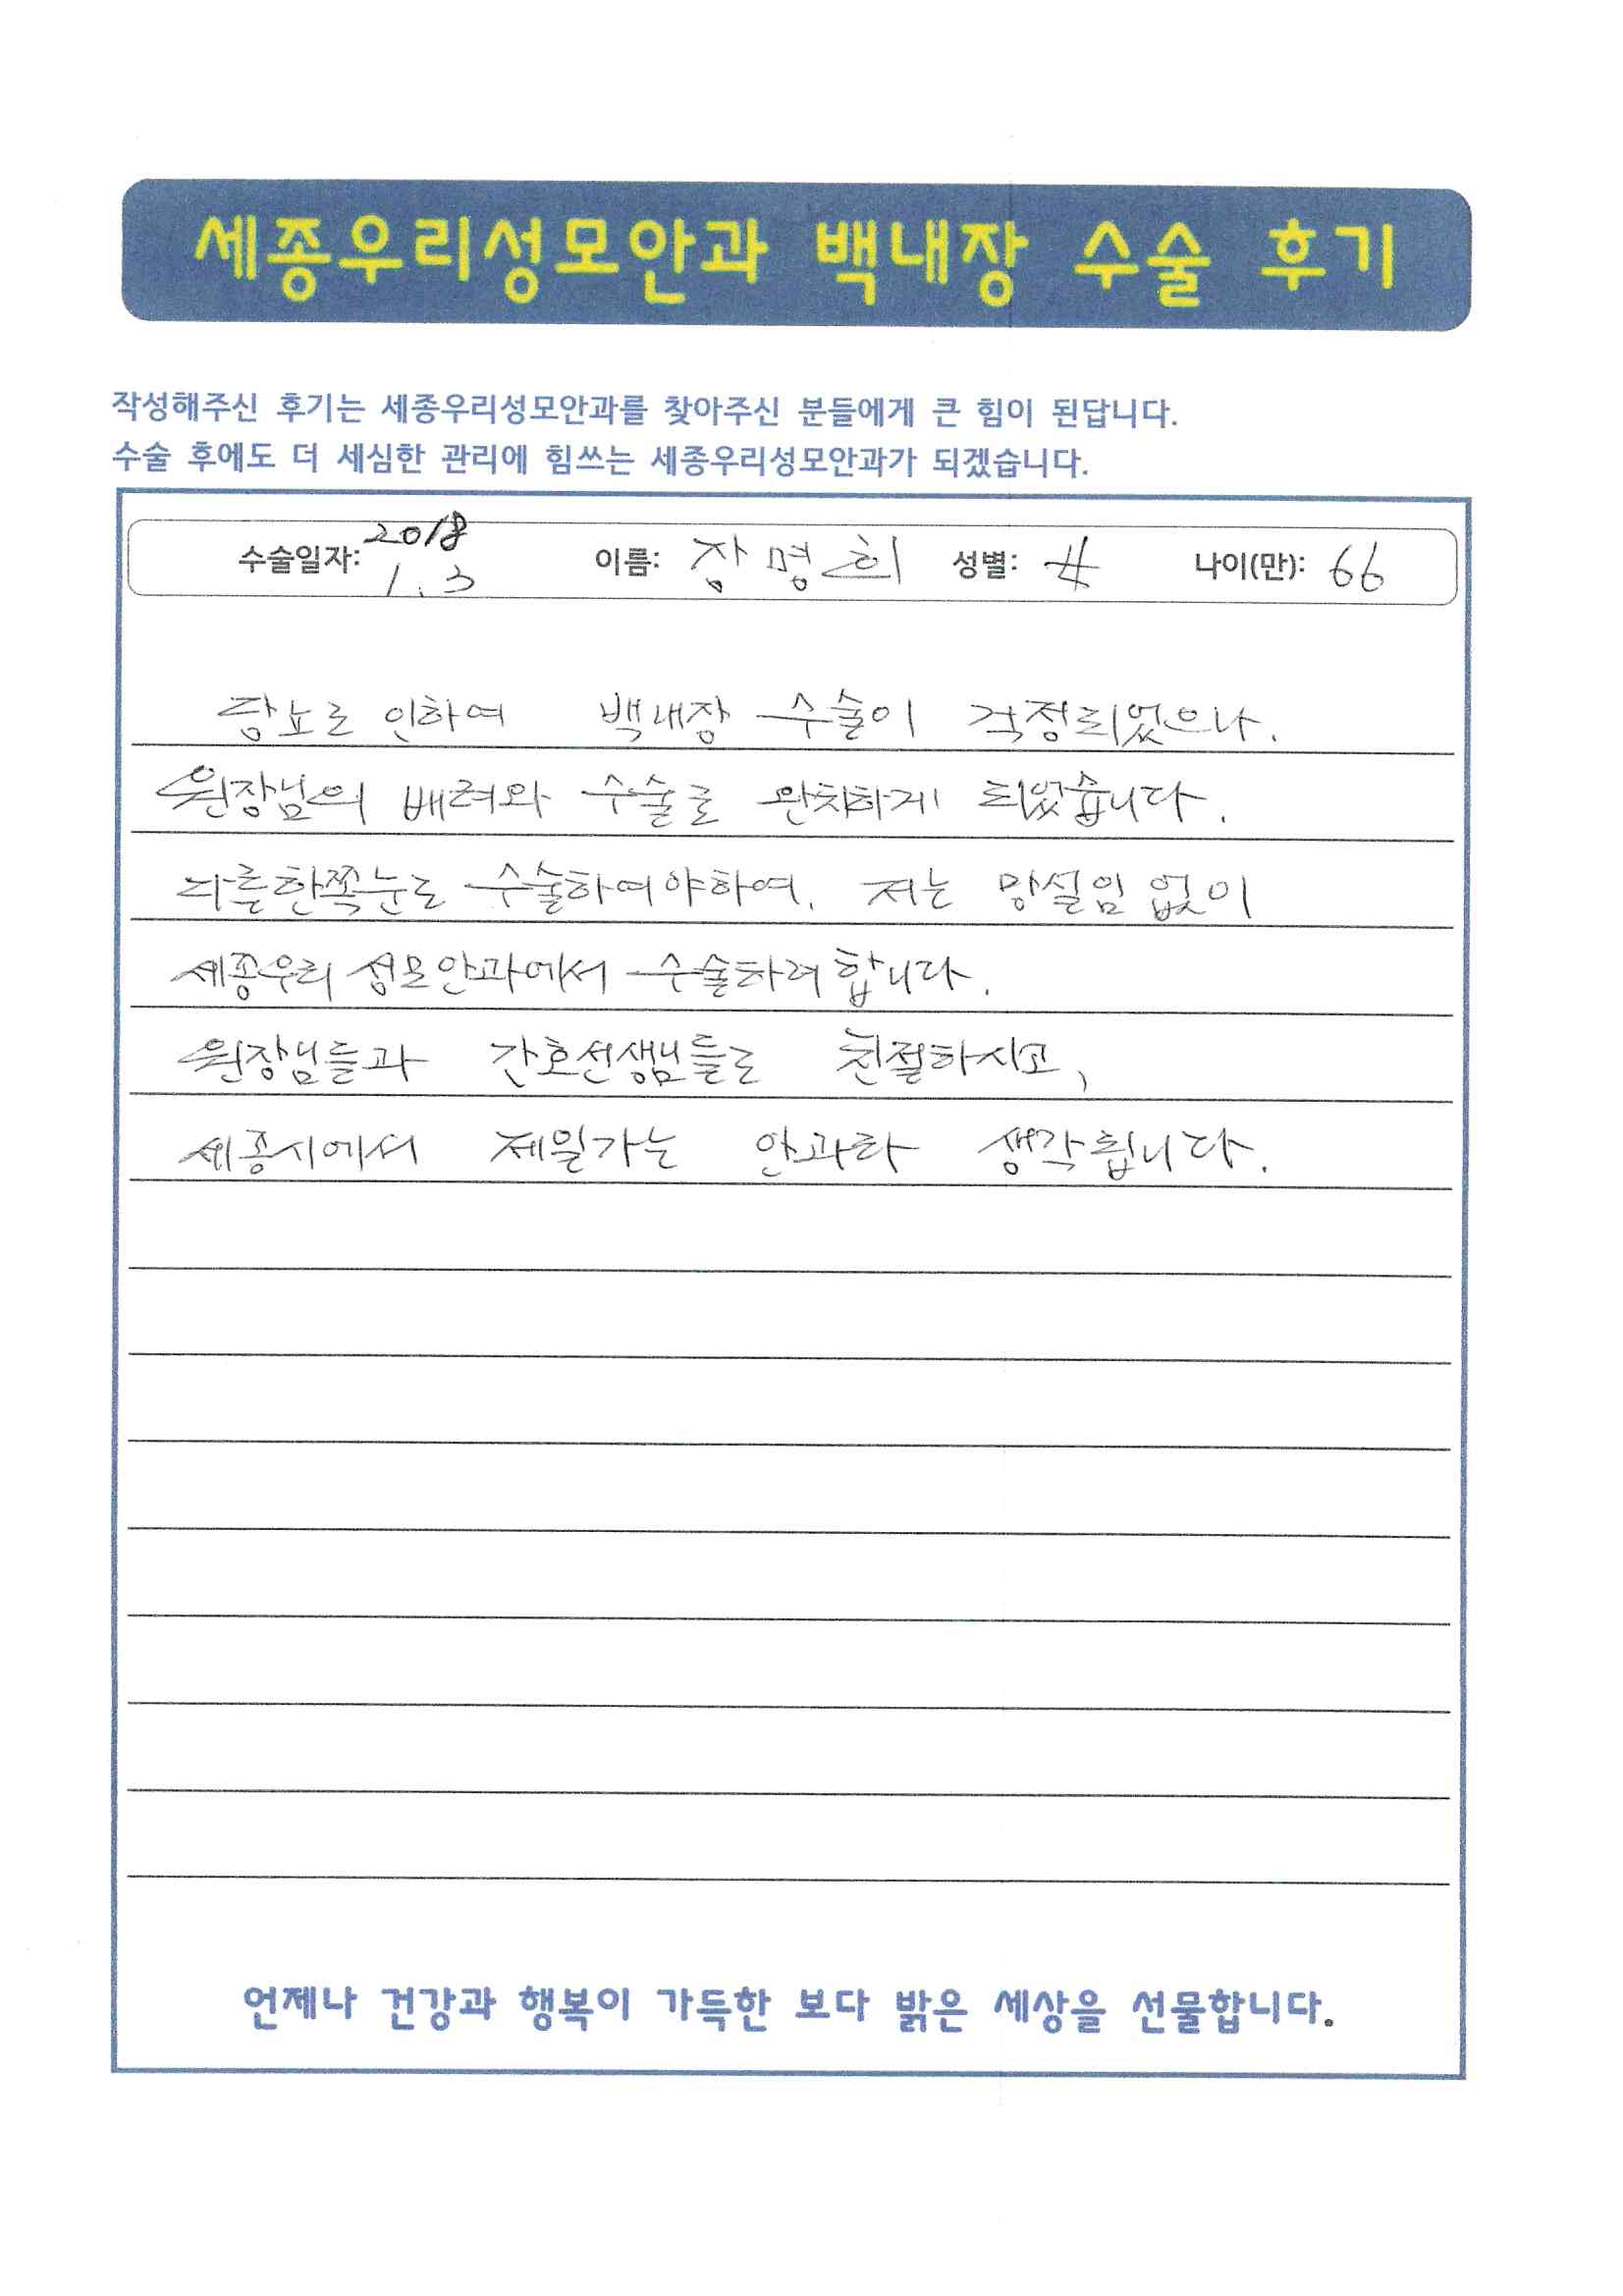 세종우리성모안과 백내장 수술 후기
작성해주신 후기는 세종우리성모안과를 찾아주신 분들에게 큰 힘이 된답니다.
수술 후에도 더 세심한 관리에 힘쓰는 세종우리성모안과가 되겠습니다.
수술일자: 2018 1.3 이름: 장명희 성별: 女 나이(만): 66
당뇨로 인하여 백내장 수술이 걱정되었으나.
원장님의 배려와 수술로 완치하게 되었습니다.
다른한쪽눈도 수술하여야하여. 저는 망설임 없이
세종우리 성모안과에서 수술하려 합니다.
원장님들과 간호선생님들도 친절하시고,
세종시에서 제일가는 안과라 생각됩니다.
언제나 건강과 행복이 가득한 보다 밝은 세상을 선물합니다.